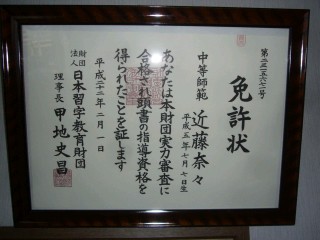 免許状
中等師範 近藤奈々
平成五年七月七日生
あなたは本財団実力審査に
合格され頭書の指導資格を
得られたことを証します
平成二十二年二月一日
財団法人 日本習字教育財団
理事長 甲地史昌